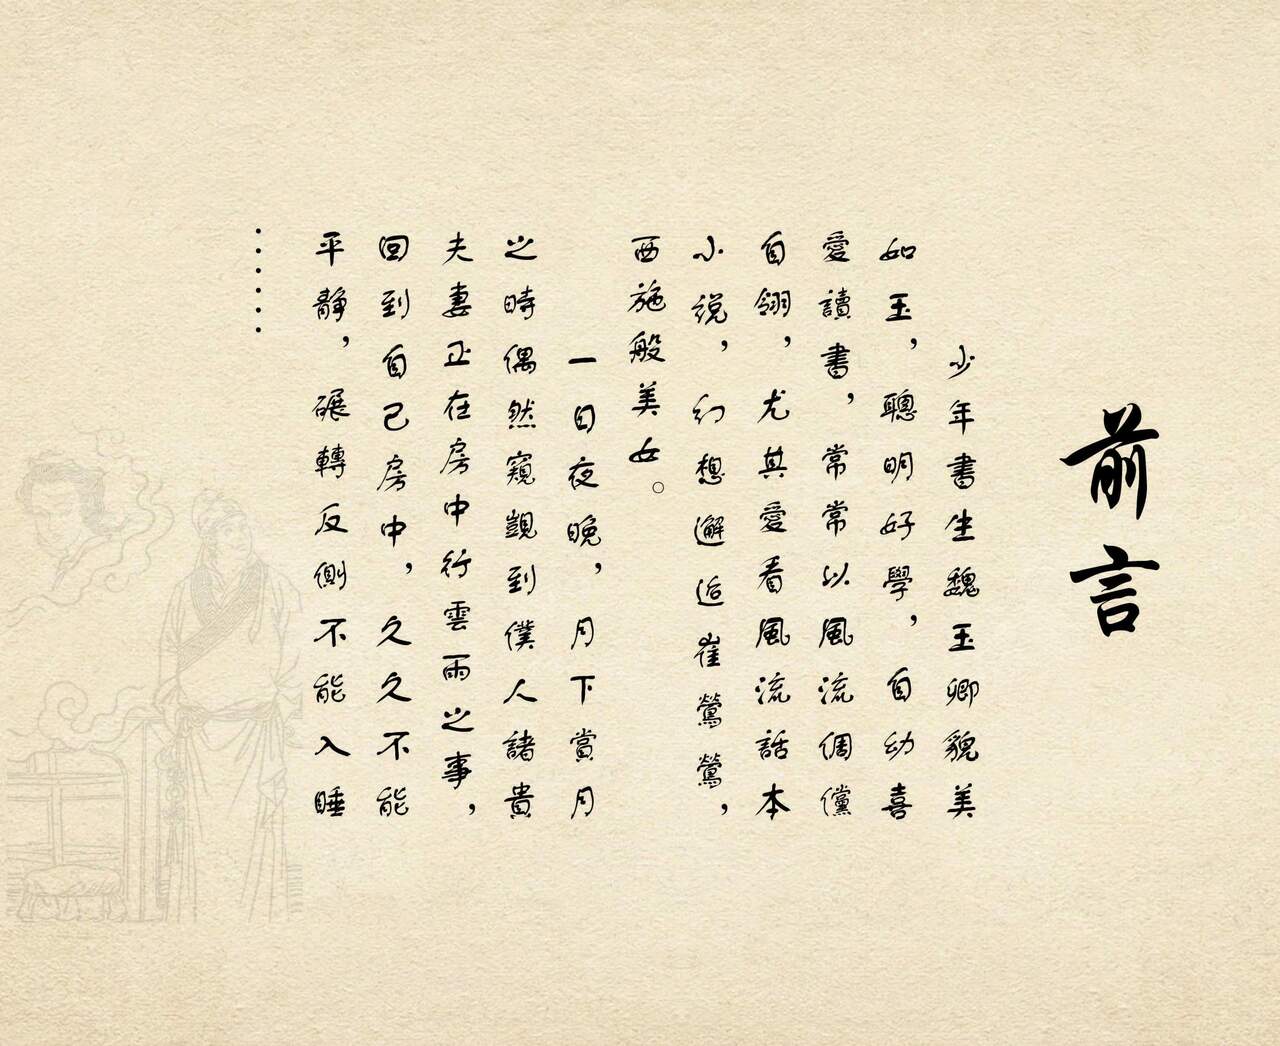 前言
少年書生魏玉卿貌美
如玉，聰明好學，自幼喜
愛讀書，常常以風流倜儻
自翎，尤其愛看風流話本
小说，幻想邂逅崔鶯鶯，
西施般美女。
一日夜晚，月下賞月
之時偶然窺覬到僕人諸貴
夫妻正在房中行雲雨之事，
回到自己房中，久久不能
平靜，碾轉反側不能入睡
······